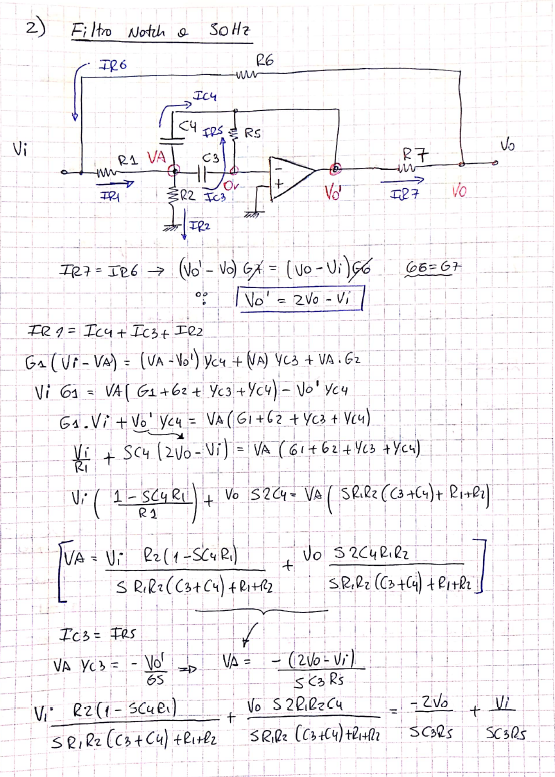 2) Filtro Notch a 50Hz
R6
IR6
IC4
C4
IR5
R5
Vi
R1
VA
C3
R7
Vo
R2
IC3
0v
-
+
Vo'
IR1
IR7
Vo
IR2
IR7 = IR6 → (Vo' - Vo) G7 = (Vo - Vi) G6 G6 = G7
∴ Vo' = 2Vo - Vi
IR1 = IC4 + IC3 + IR2
G1 (Vi - VA) = (VA - Vo') YC4 + (VA) YC3 + VA · G2
Vi G1 = VA ( G1 + G2 + YC3 + YC4) - Vo' YC4
G1 . Vi + Vo' YC4 = VA (G1 + G2 + YC3 + YC4)
Vi/R1 + SC4 (2Vo - Vi) = VA (G1 + G2 + YC3 + YC4)
Vi ( (1 - SC4R1)/R1 ) + Vo S2C4 = VA ( SR1R2 (C3+C4) + R1+R2)
[ VA = Vi R2(1 - SC4R1) / (SR1R2(C3+C4)+R1+R2) + Vo S2C4R1R2 / (SR1R2(C3+C4)+R1+R2) ]
IC3 = IR5
VA YC3 = - Vo'/G5 ⇒ VA = -(2Vo - Vi)/(SC3R5)
Vi · R2(1 - SC4R1) / (SR1R2(C3+C4)+R1+R2) + Vo S2R1R2C4 / (SR1R2(C3+C4)+R1+R2) = -2Vo/(SC3R5) + Vi/(SC3R5)